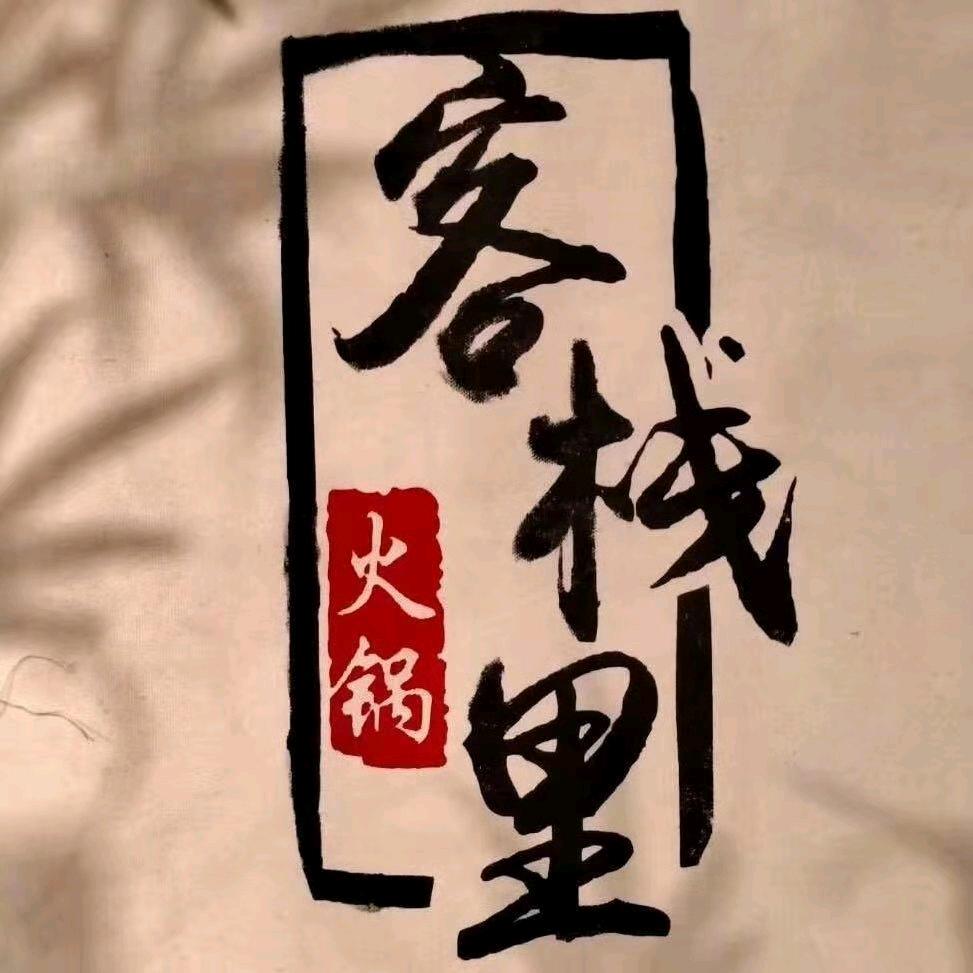 客栈里
火锅